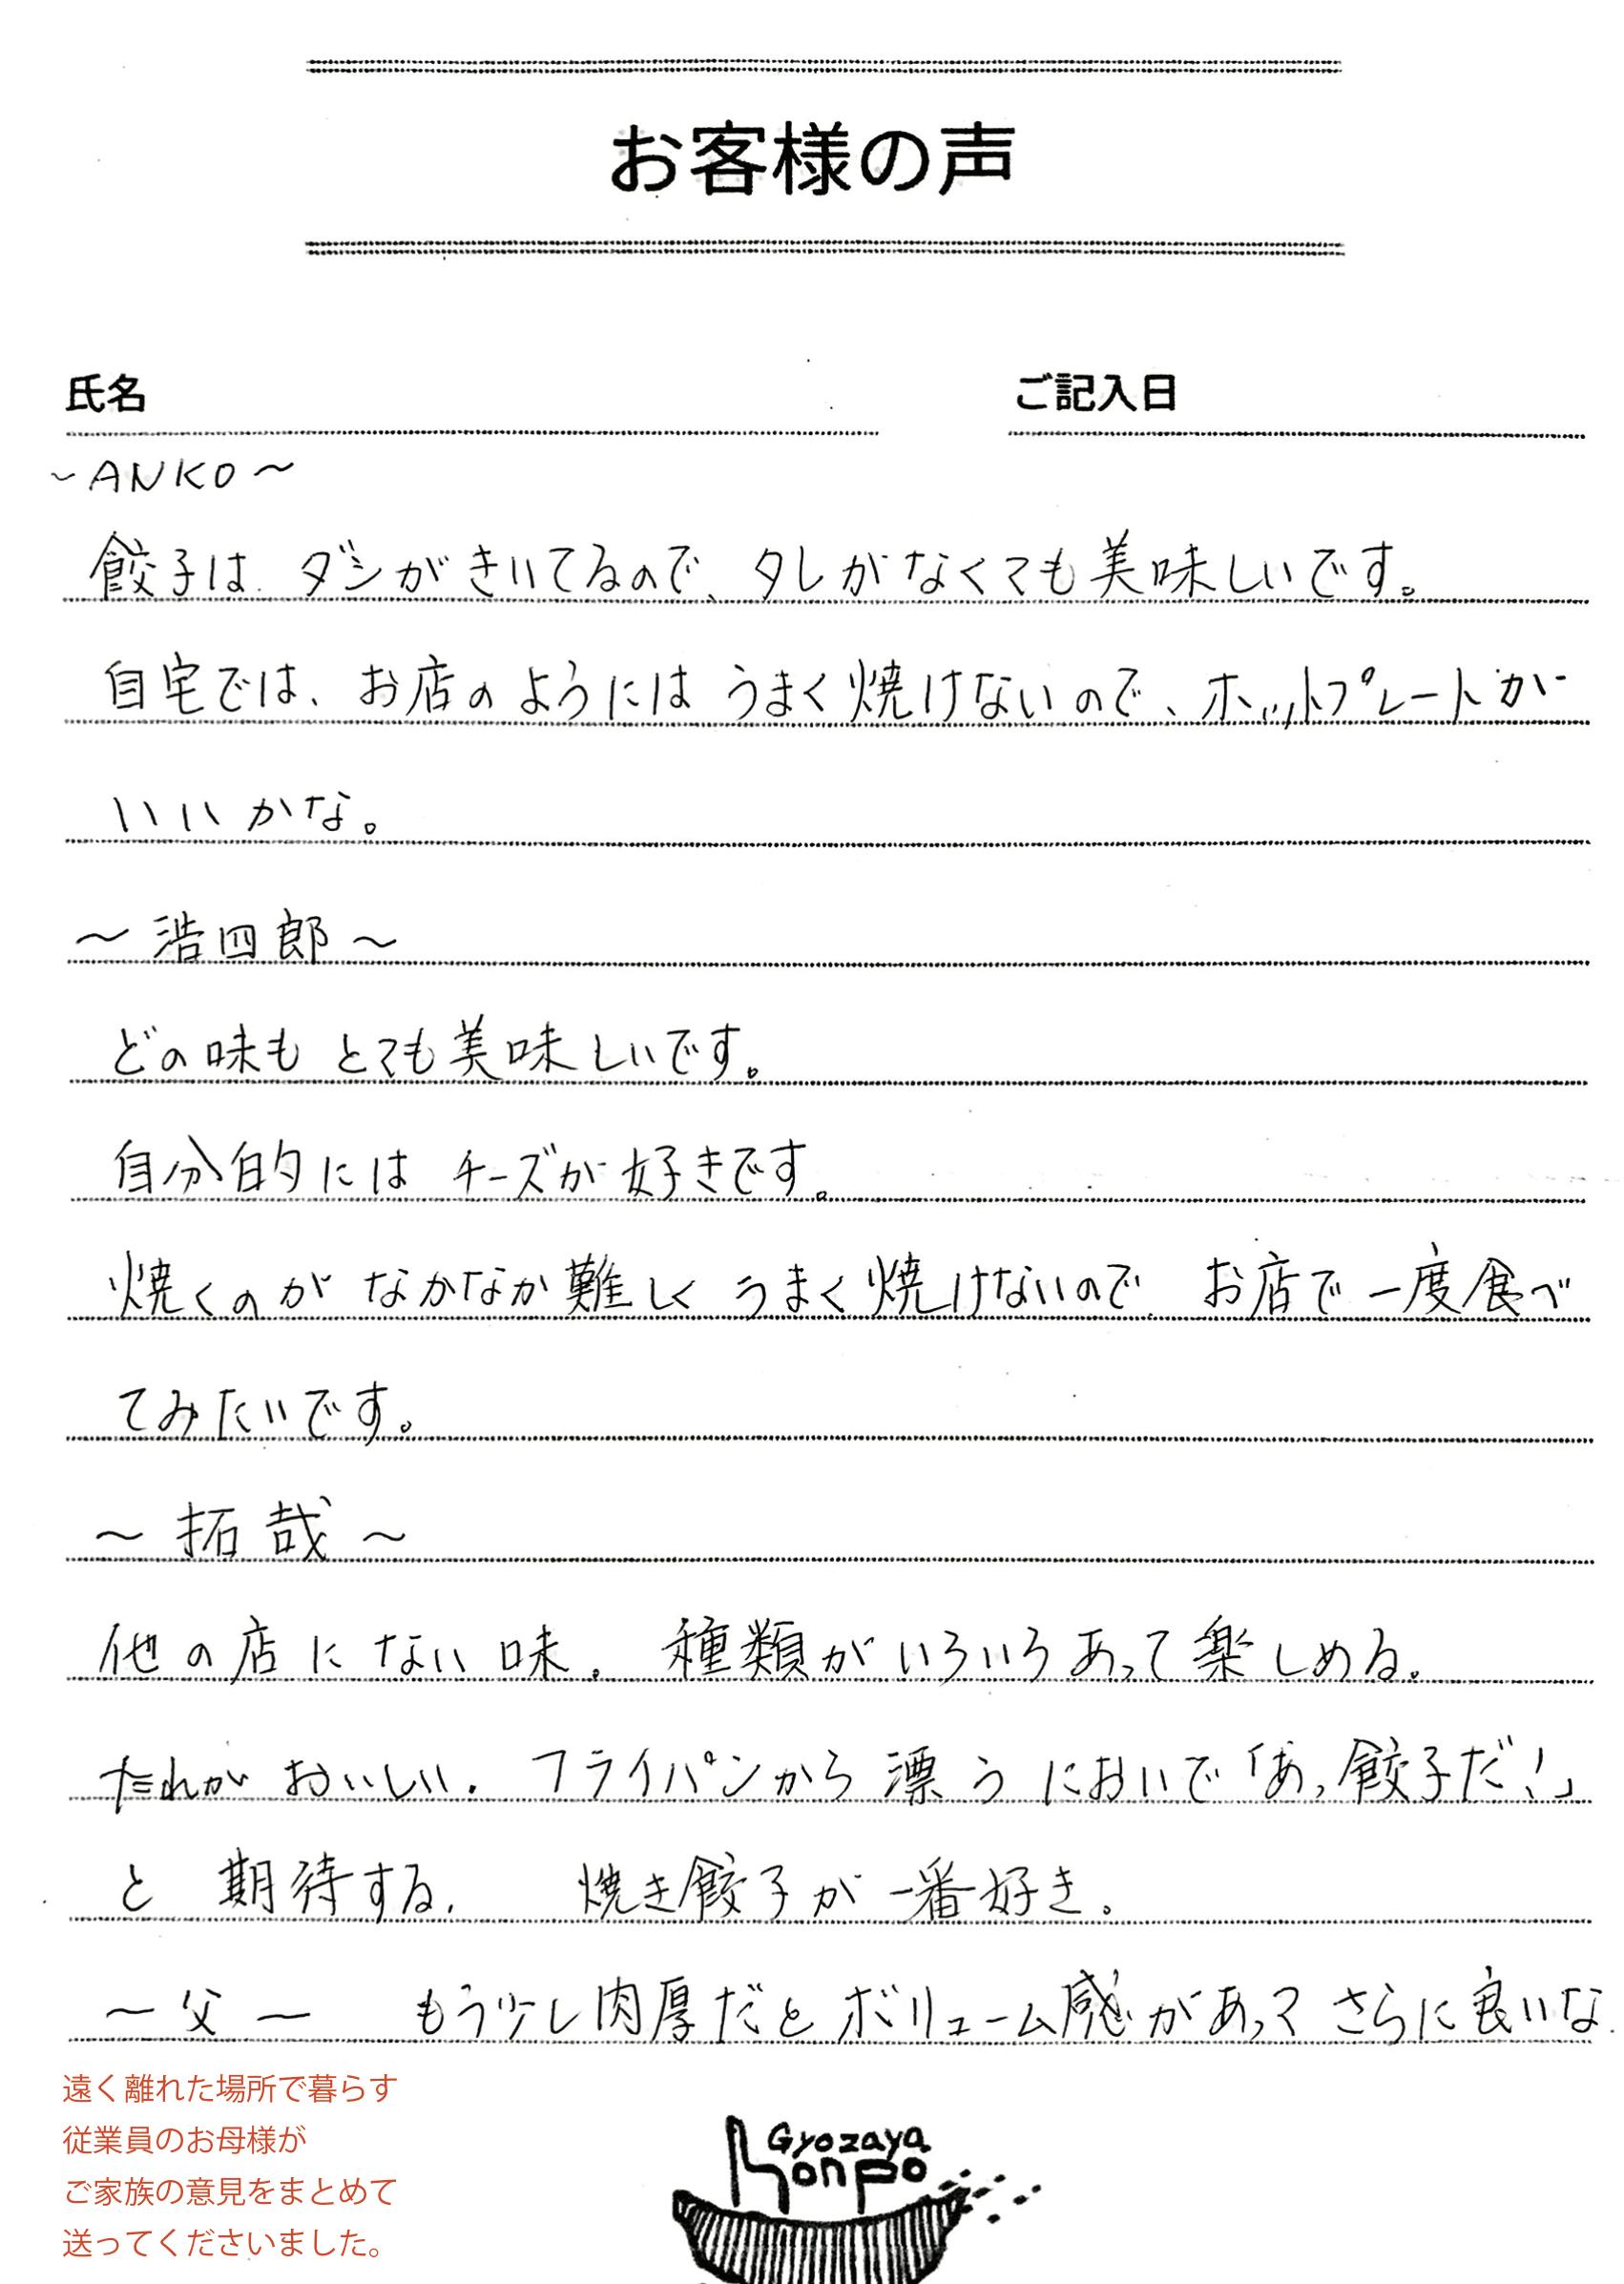 お客様の声
氏名
ご記入日
～ANKO～
餃子は、ダシがきいてるので、タレがなくても美味しいです。
自宅では、お店のようにはうまく焼けないので、ホットプレートが
いいかな。
～浩四郎～
どの味もとても美味しいです。
自分的にはチーズが好きです。
焼くのがなかなか難しくうまく焼けないので、お店で一度食べ
てみたいです。
～拓哉～
他の店にない味。種類がいろいろあって楽しめる。
たれがおいしい。フライパンから漂うにおいで「あっ餃子だ！」
と期待する。焼き餃子が一番好き。
～父～ もう少し肉厚だとボリューム感があってさらに良いな。
遠く離れた場所で暮らす
従業員のお母様が
ご家族の意見をまとめて
送ってくださいました。
Gyozaya
honpo